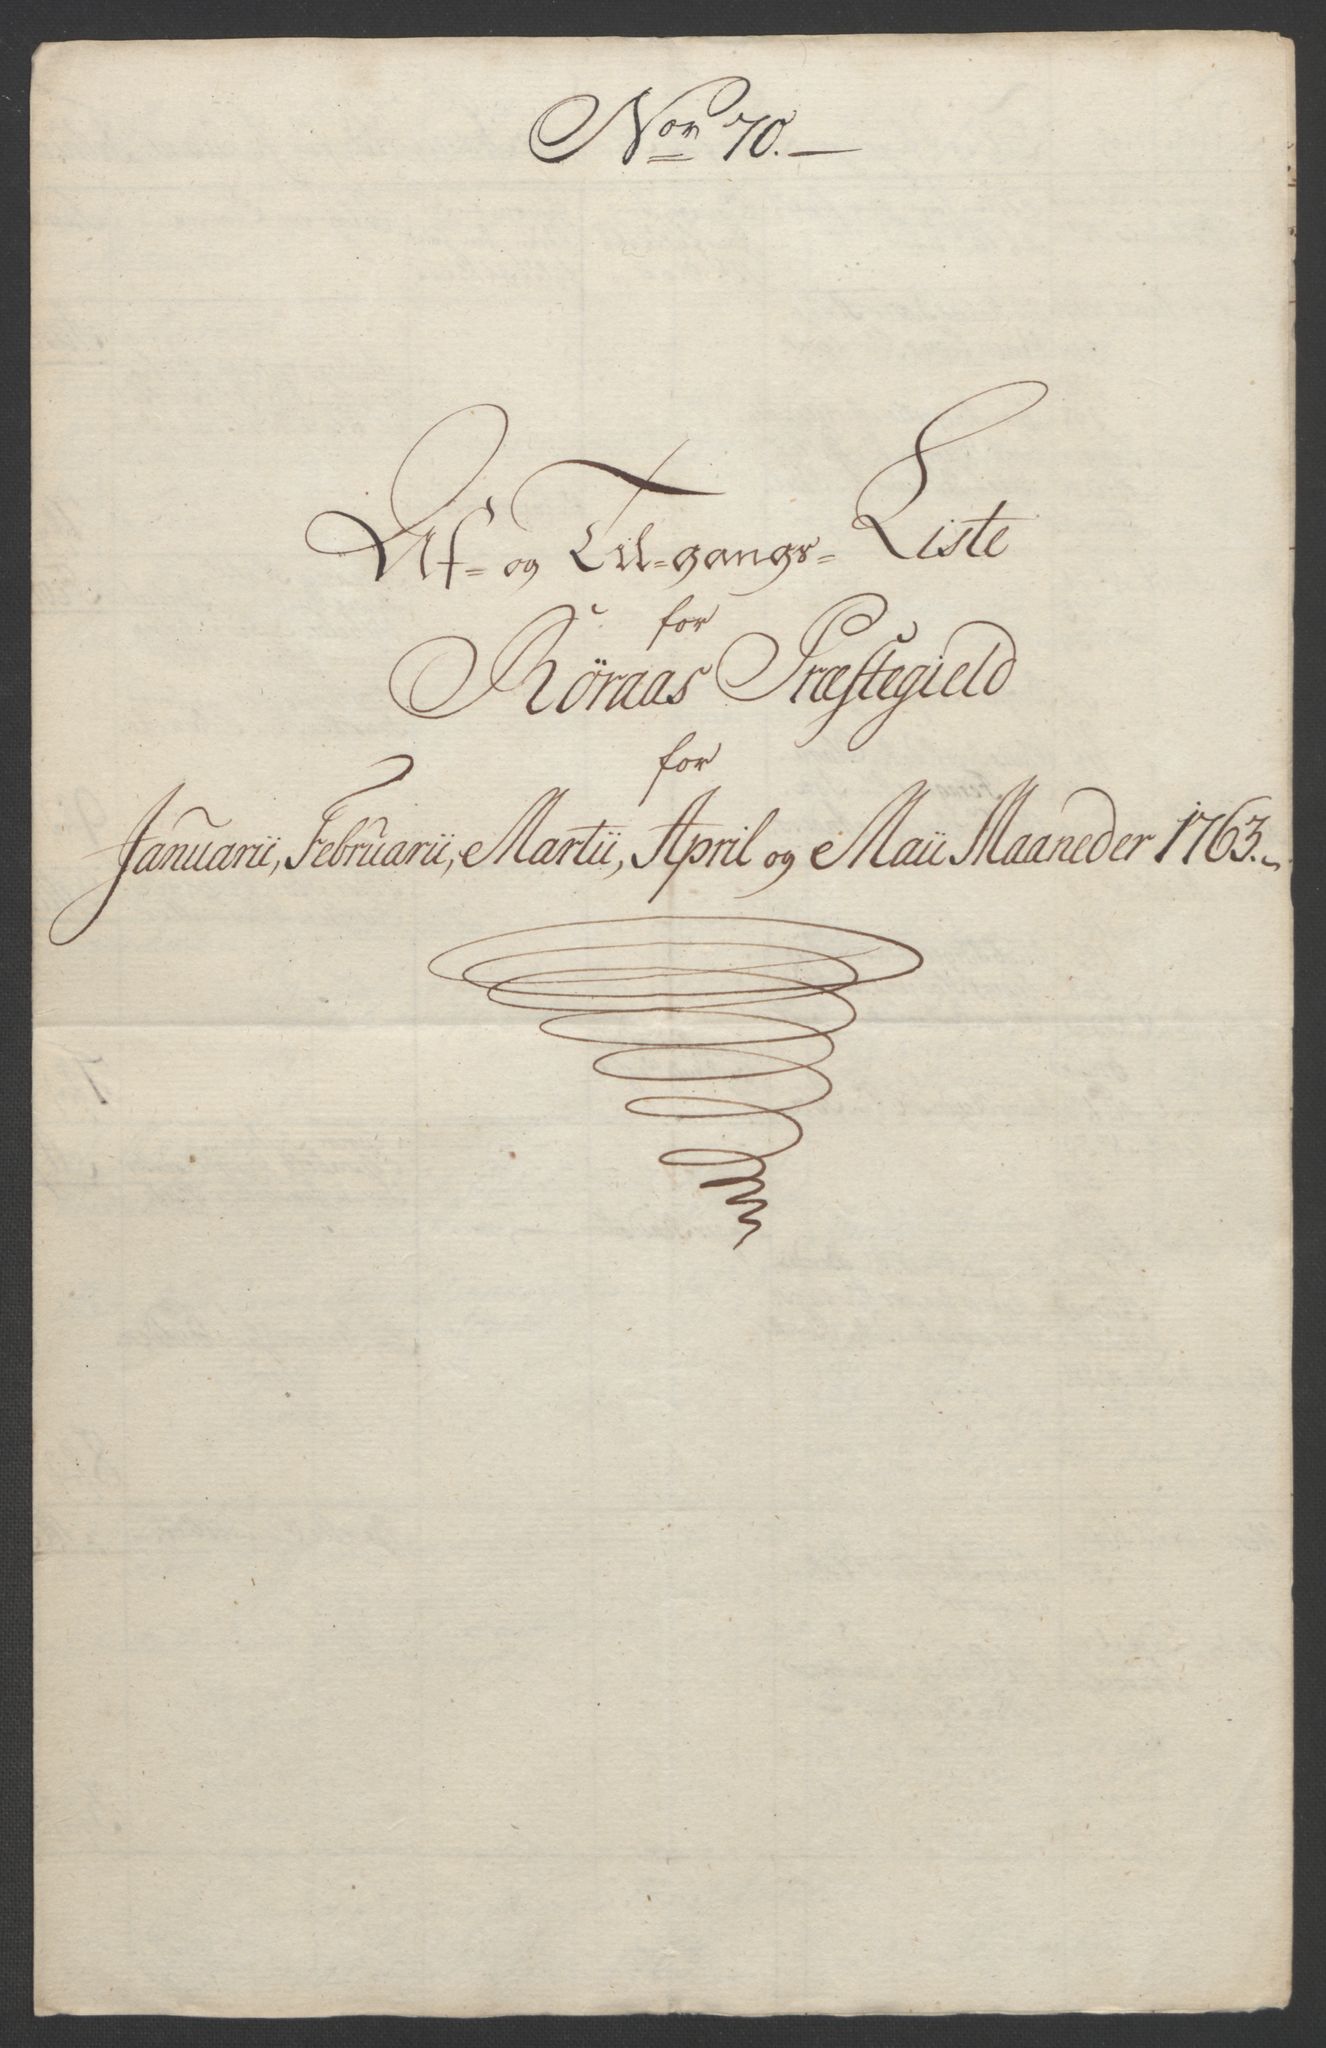 Nor 70.
Af- og Til-gangs- Liste
for
Röraas Præstegield
for
Januarii, Februarii, Martii, April og Maii Maaneder 1763.